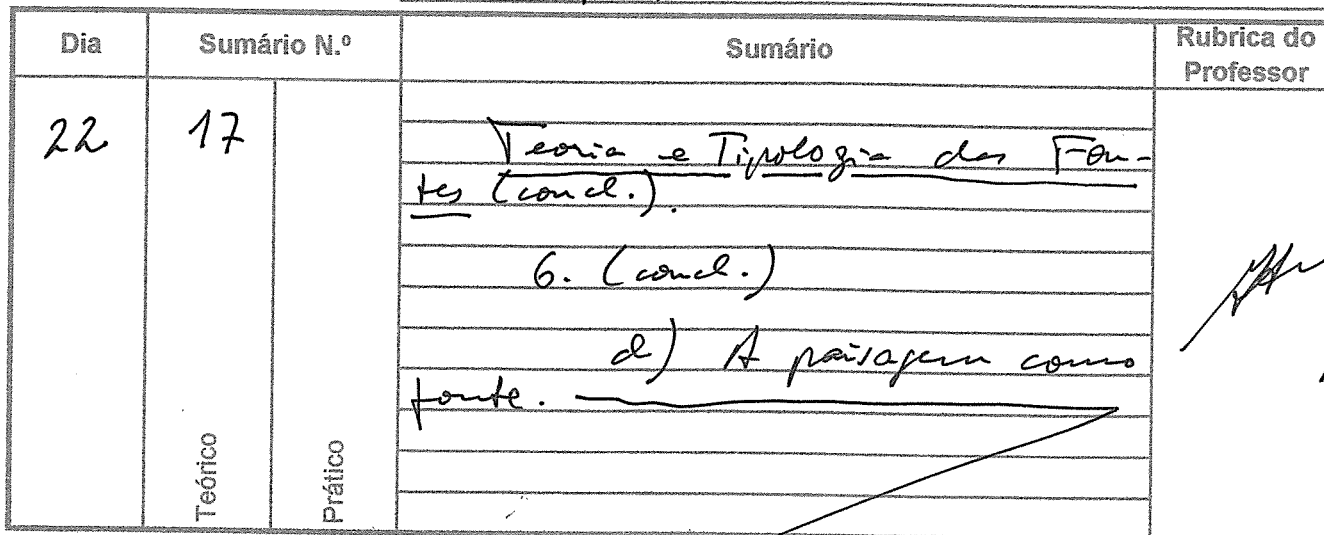 Dia Sumário N.º Sumário Rubrica do
Professor
22 17 Teoria e Tipologia das Fon-
tes (concl.).
6. (concl.)
d) A paisagem como
fonte.
Teórico Prático